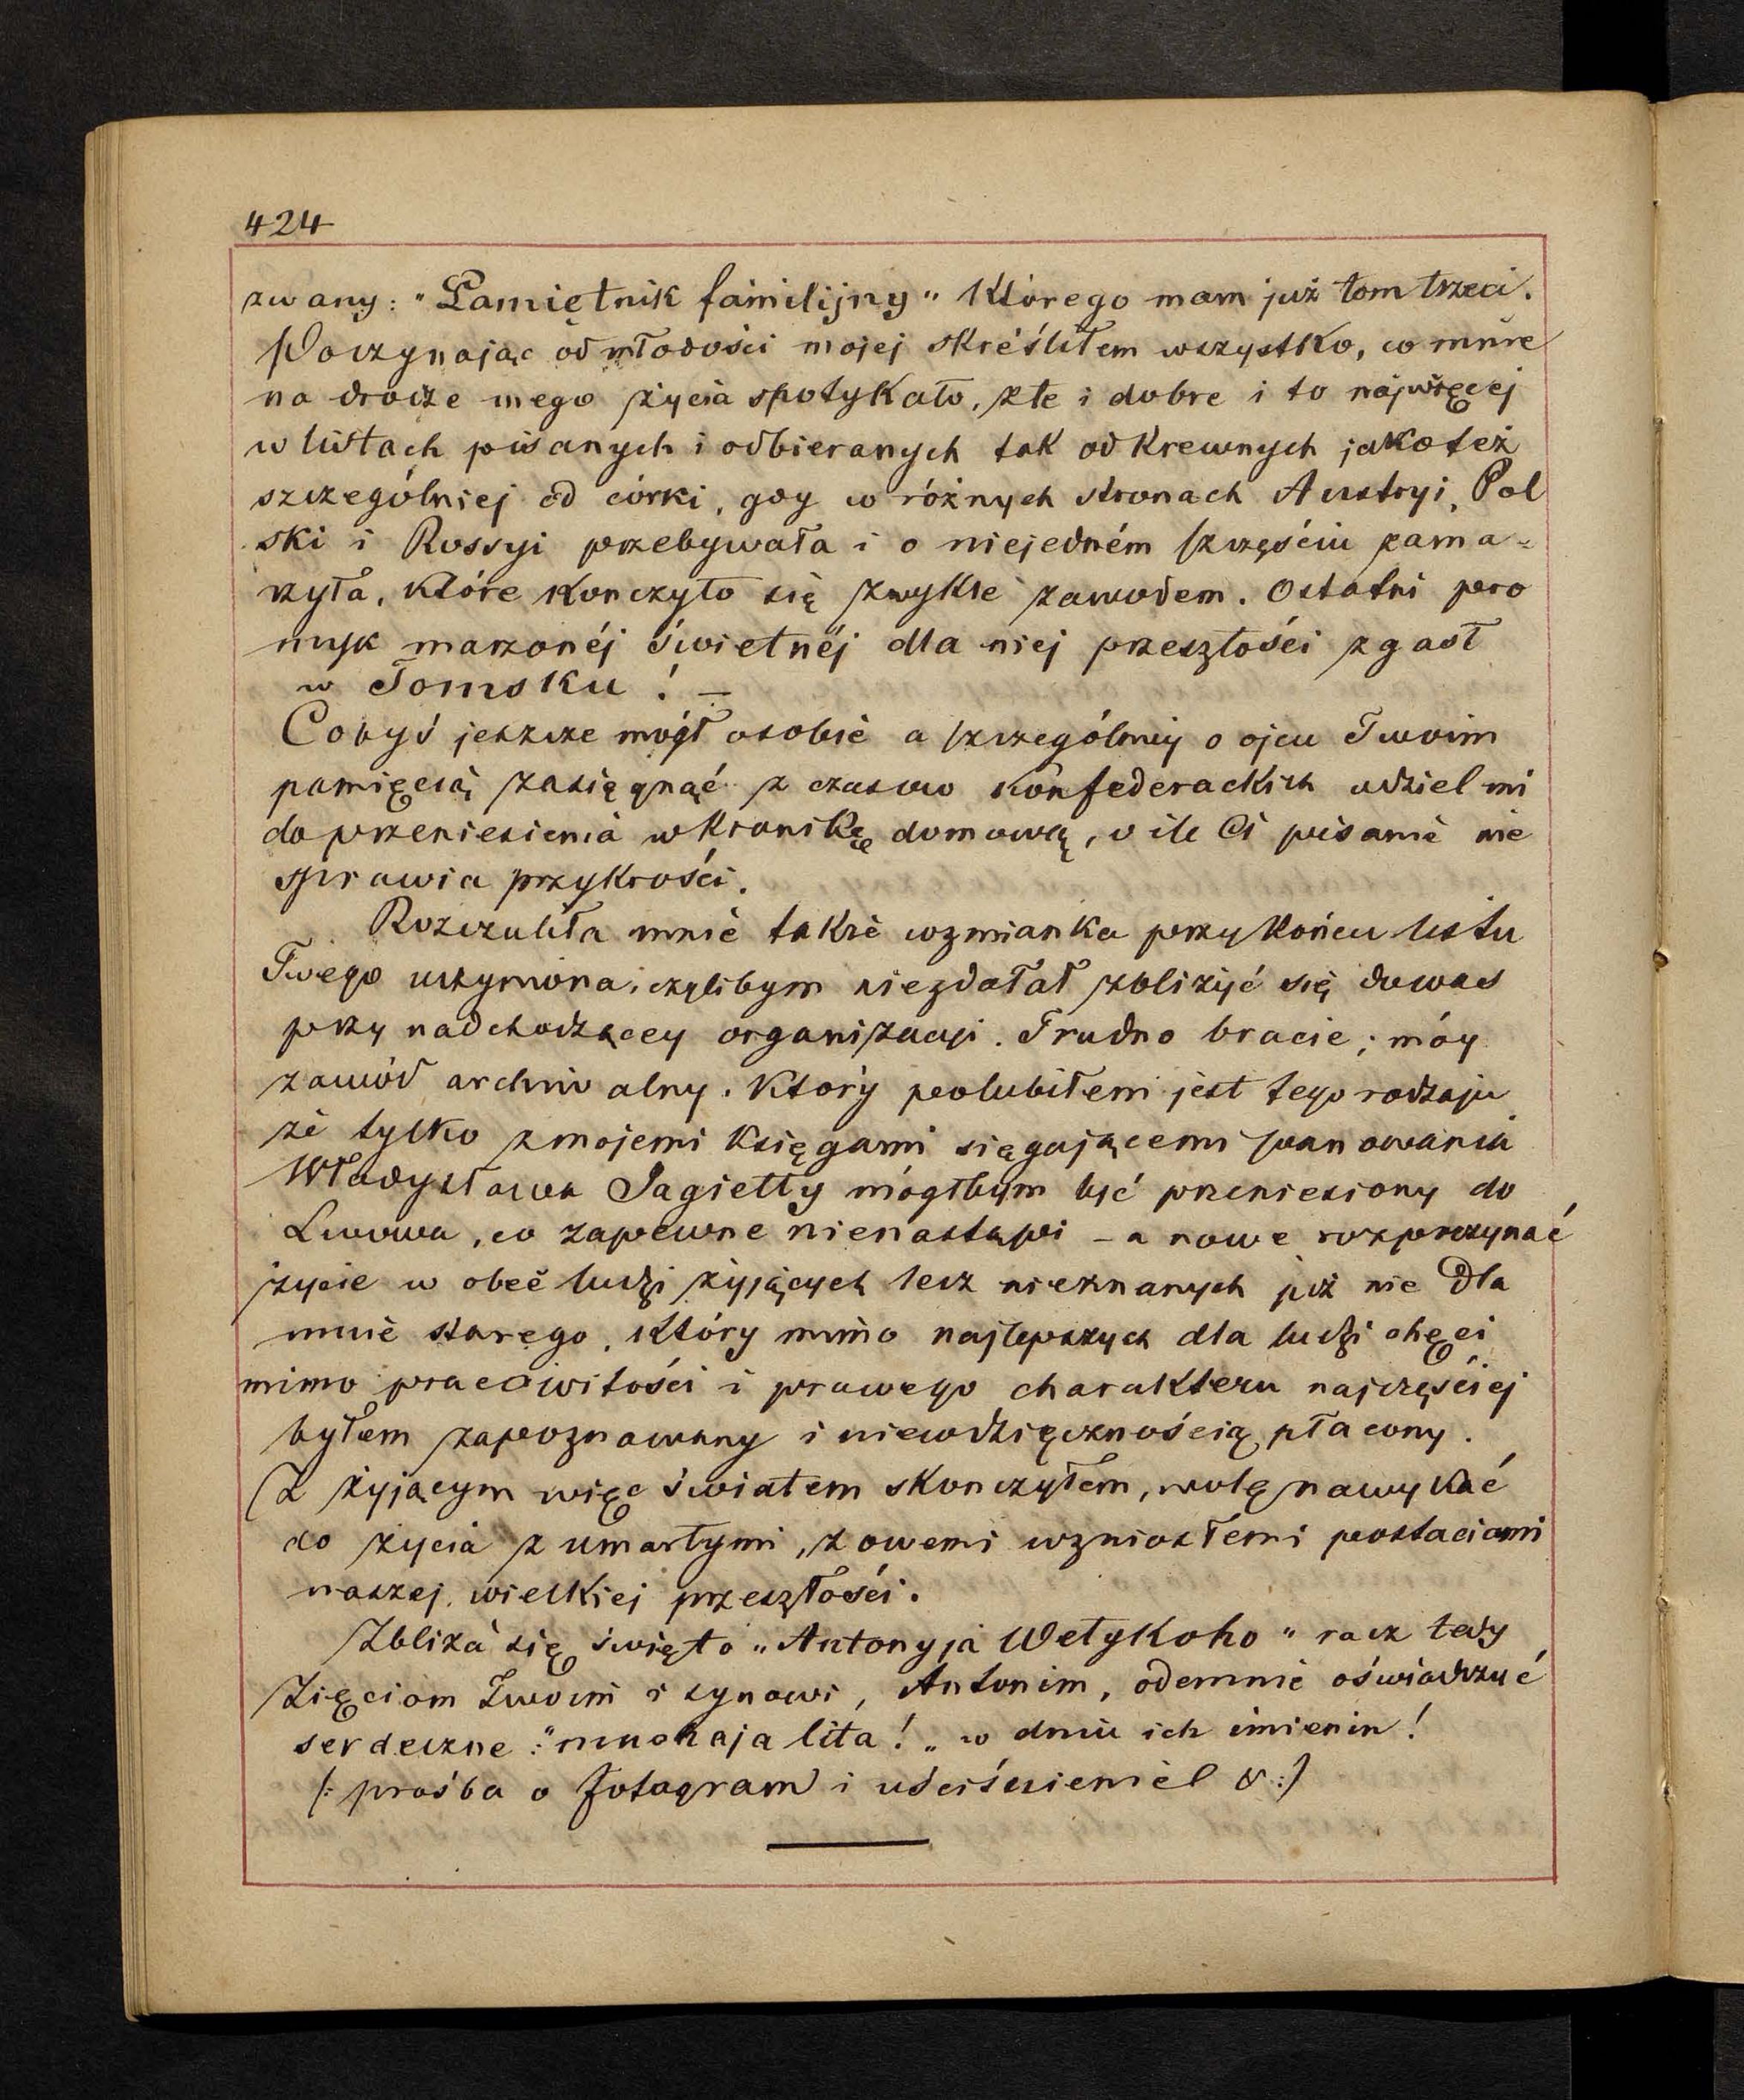 424
zwany: "Pamiętnik familijny" którego mam już tom trzeci.
Poczynając od młodości mojej skreśliłem wszystko, co mnie
na drodze mego życia spotykało, złe i dobre i to najwięcej
w listach pisanych i odbieranych tak od krewnych jako też
szczególniej od córki, gdy w różnych stronach Austryi, Pol
ski i Rossyi przebywała i o niejedném szczęściu zama=
rzyła, które kończyło się zwykle zawodem. Ostatni pro
myk marzonéj świetnéj dla niej przeszłości zgasł
w Tomsku! –
Cobyś jeszcze mógł osobie a szczególniej o ojcu Twoim
pamięcią zasięgnąć z czasów konfederackich udziel mi
do przeniesienia w kronikę domową, o ile Ci pisanie nie
sprawia przykrości.
Rozczuliła mnie także wzmianka przy końcu listu
Twego uczyniona, czylibym niezdałał zbliżyć się dowas
przy nadchodzącey organizacyi. Trudno bracie; móy
zawód archiwalny, który polubiłem jest tego rodzaju
że tylko z mojemi księgami sięgającemi panowania
Władysława Jagiełły mógłbym być przeniesiony do
Lwowa, co zapewne nienastąpi – a nowe rozpoczynać
życie w obec ludzi żyjących lecz nieznanych już nie dla
mnie starego, który mimo najlepszych dla ludzi chęci
mimo pracowitości i prawego charakteru najczęściej
byłem zapoznawany i niewdzięcznością płacony.
Z żyjącym więc światem skończyłem, wolę nawykać
do życia z umarłymi, z owemi wzniosłemi postaciami
naszej wielkiej przeszłości.
Zbliża się święto "Antonyja Wełykoho" racz tedy
Zięciom Twoim i synowi, Antonim, odemnie oświadczyć
serdeczne: "mnohaja lita!" w dniu ich imienin!
(: prośba o fotogram i uściśnienie :)